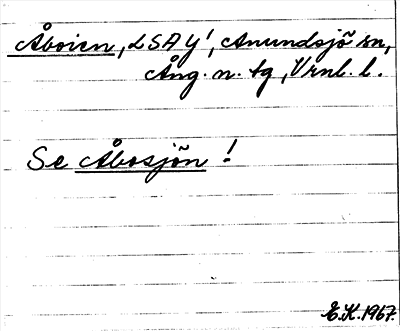 Åboien, LSAY!, Anundsjö sn,
Ång. n. tg, Vrnl. l.
Se Åbosjön!
E.K.1967.